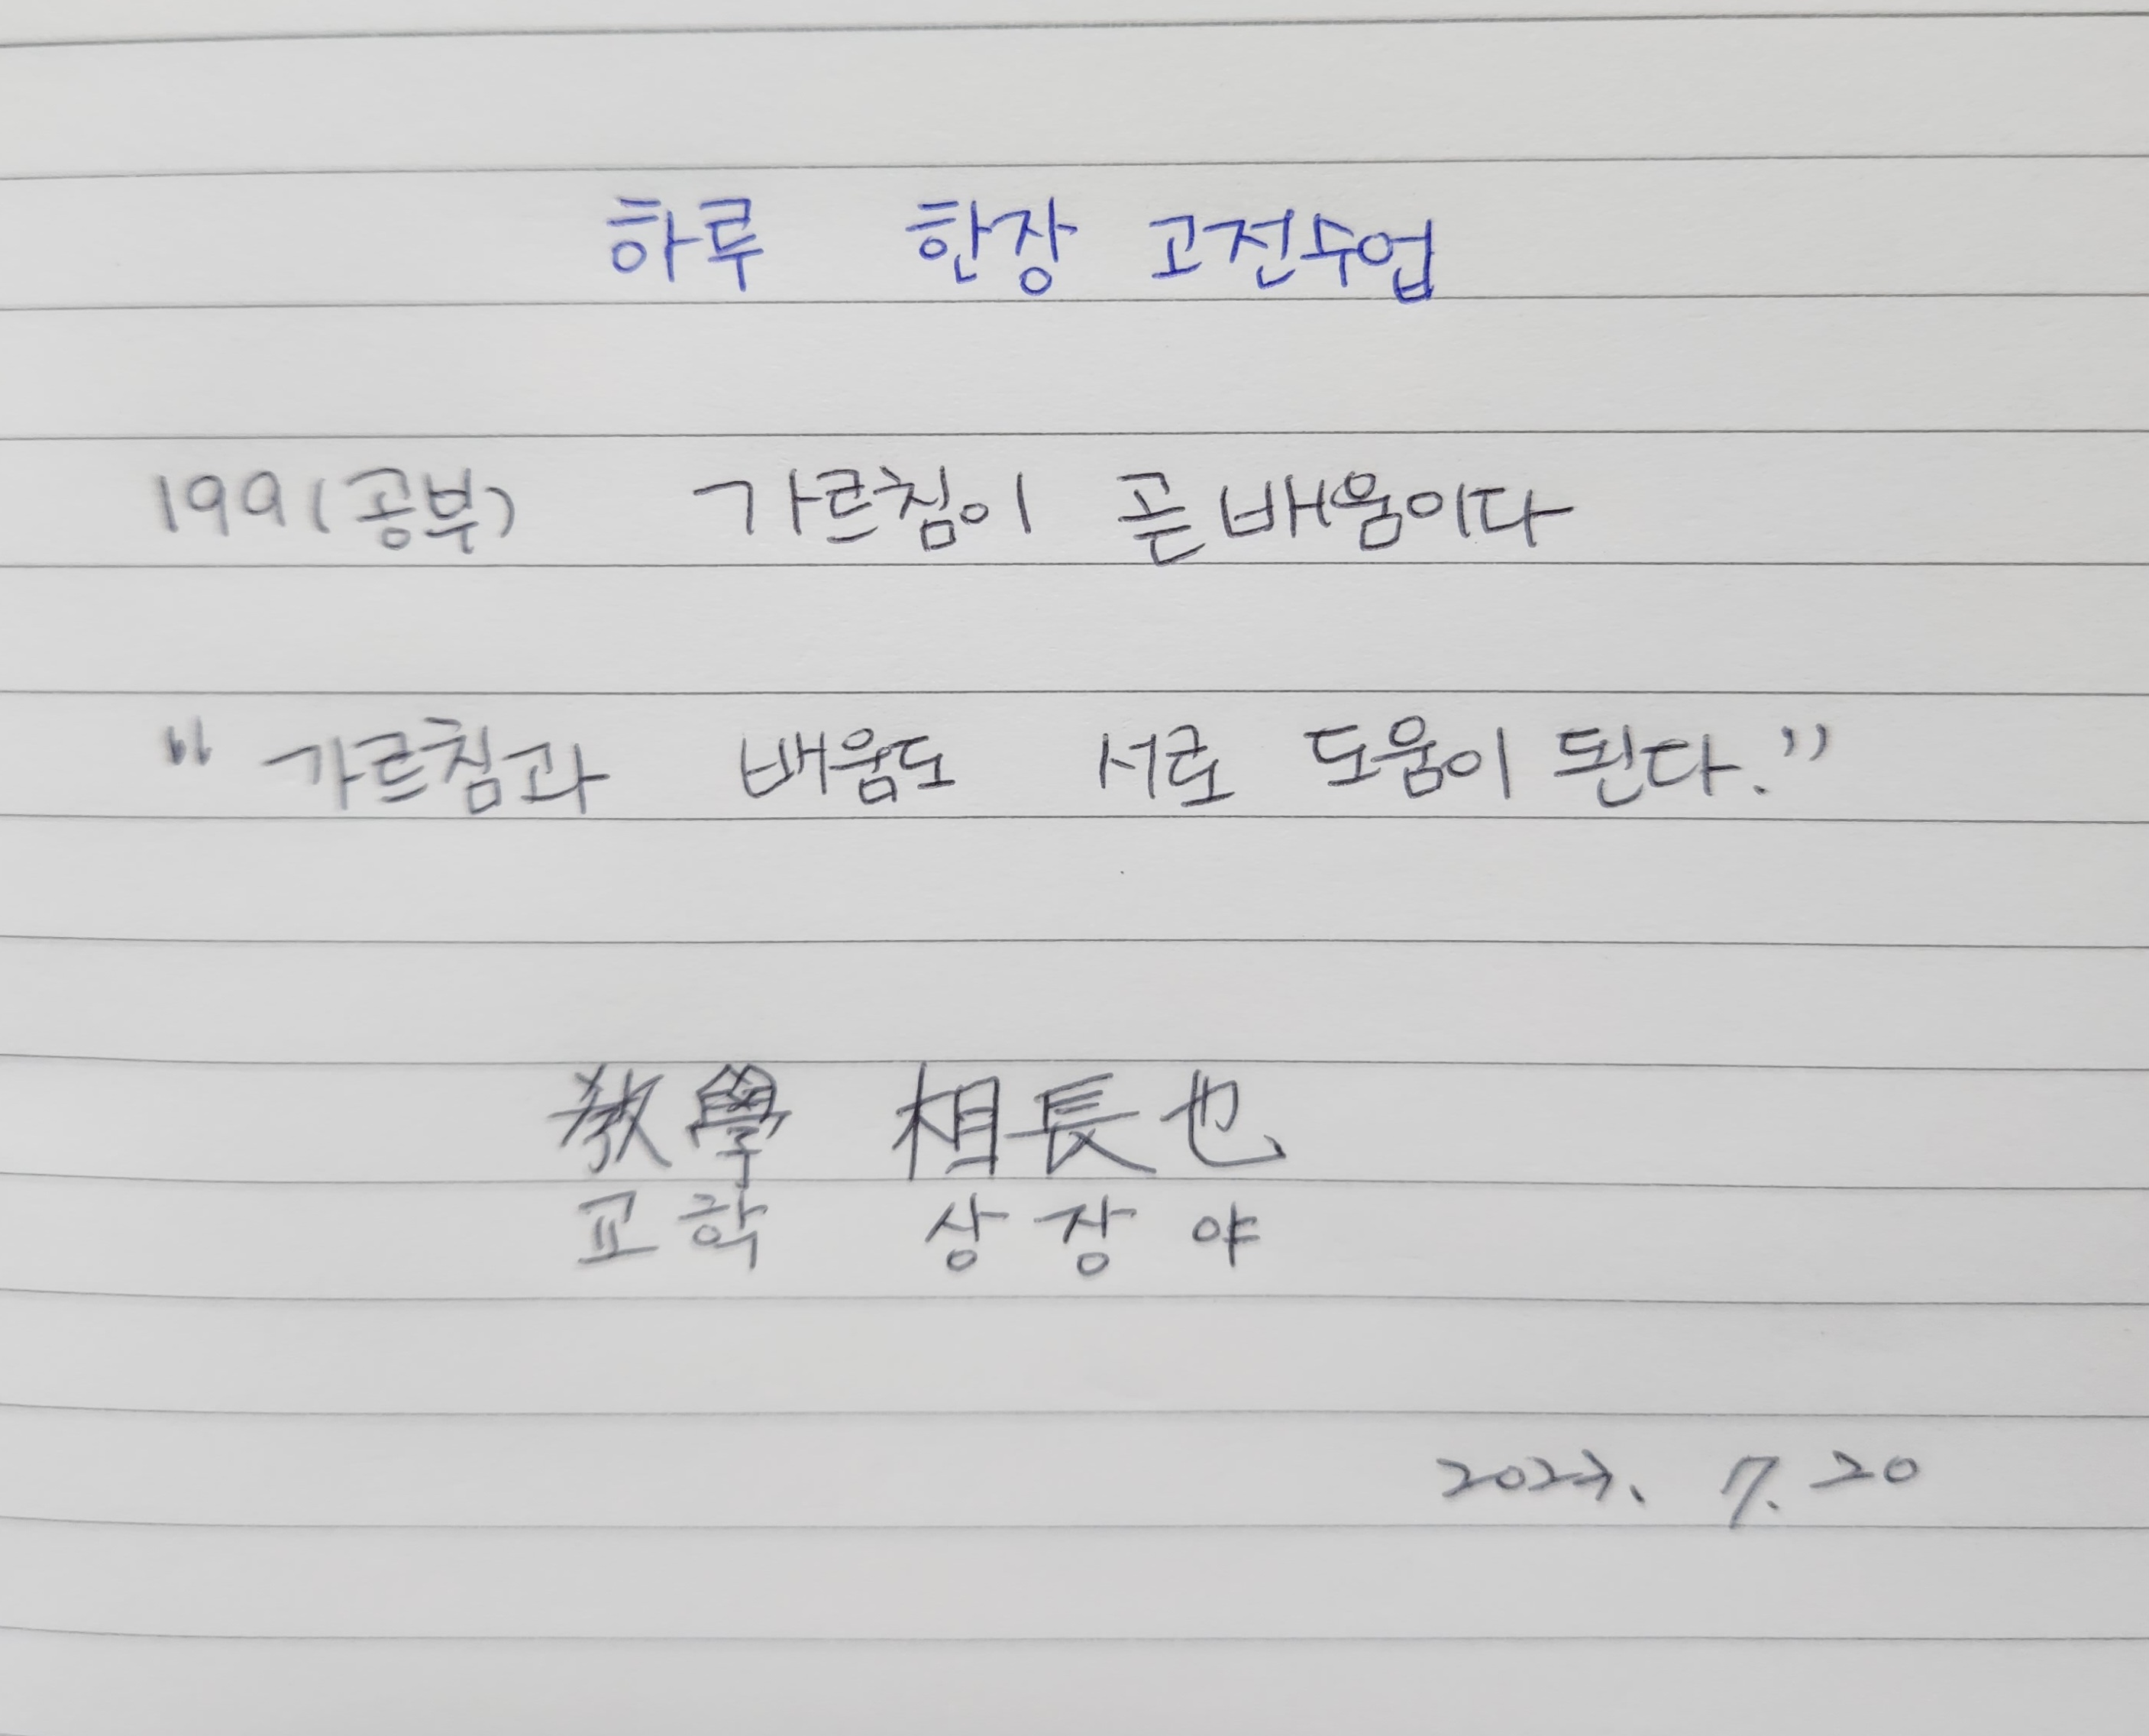 하루 한장 고전수업
199(공부) 가르침이 곧 배움이다
“가르침과 배움도 서로 도움이 된다.”
敎學 相長也
교학 상장야
2023. 7. 20